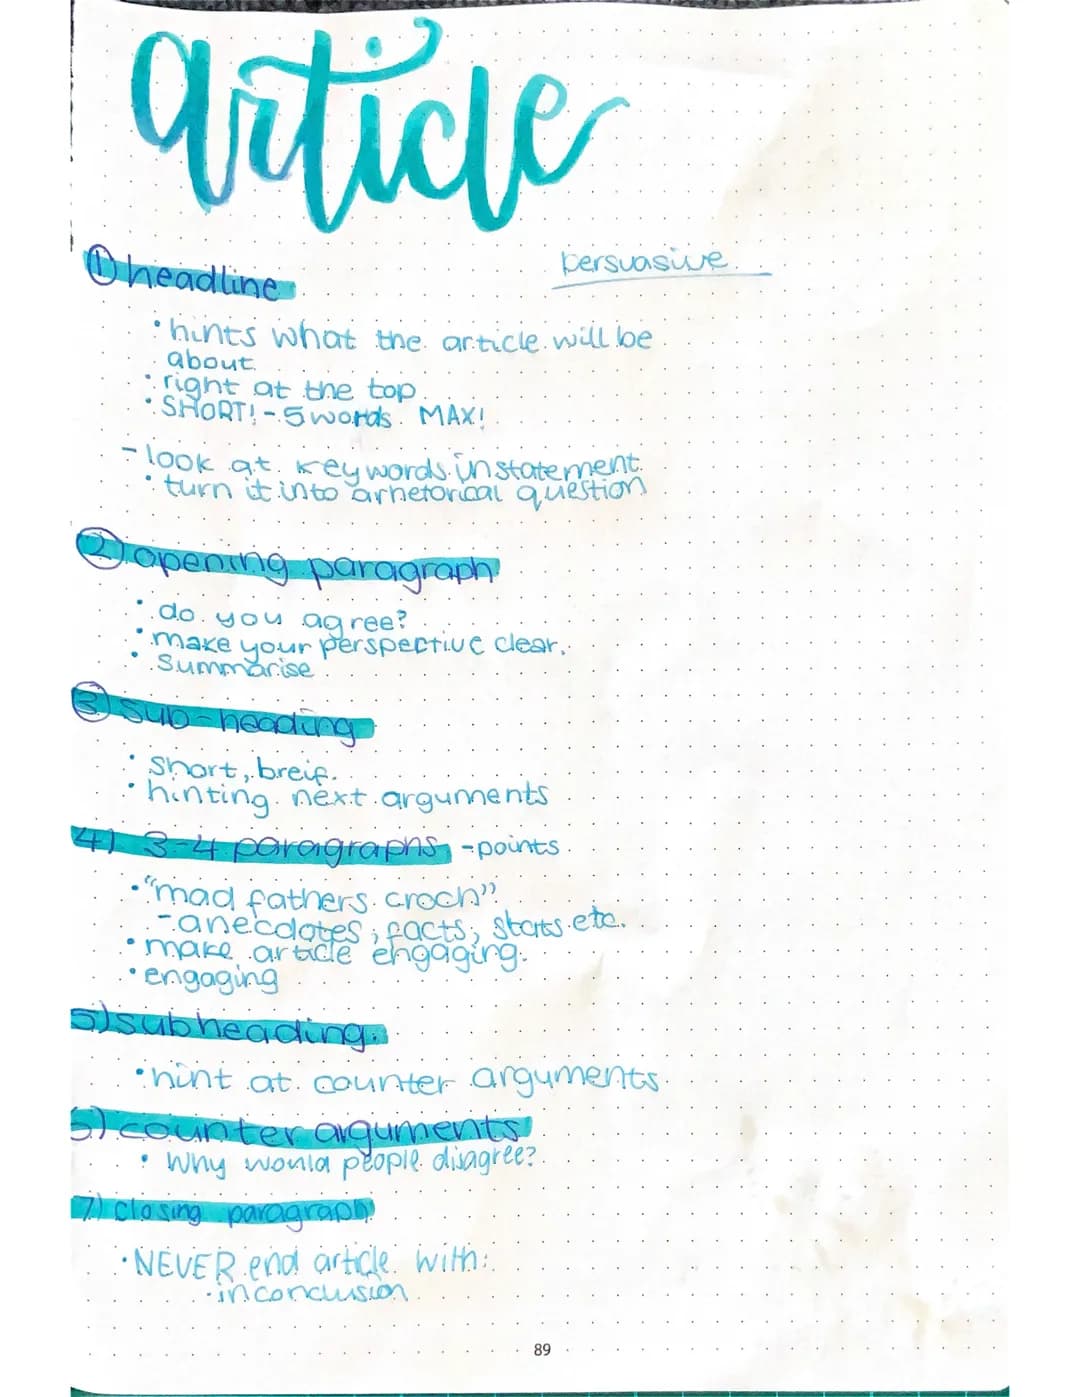 article
persuasive
① headline
• hints what the article will be
about
• right at the top
• SHORT! - 5 words MAX!
- look at keywords in statement
• turn it into a rhetorical question
② opening paragraph
• do you agree?
• make your perspective clear.
• Summarise
③ sub-heading
• short, breif.
• hinting next arguments
4) 3-4 paragraphs - points
• "mad fathers croch"
- anecdotes, facts, stats etc.
• make article engaging.
• engaging
5) subheading.
• hint at counter arguments
6) counter arguments
• Why would people disagree?
7) closing paragraph
• NEVER end article with:
• in conclusion
89